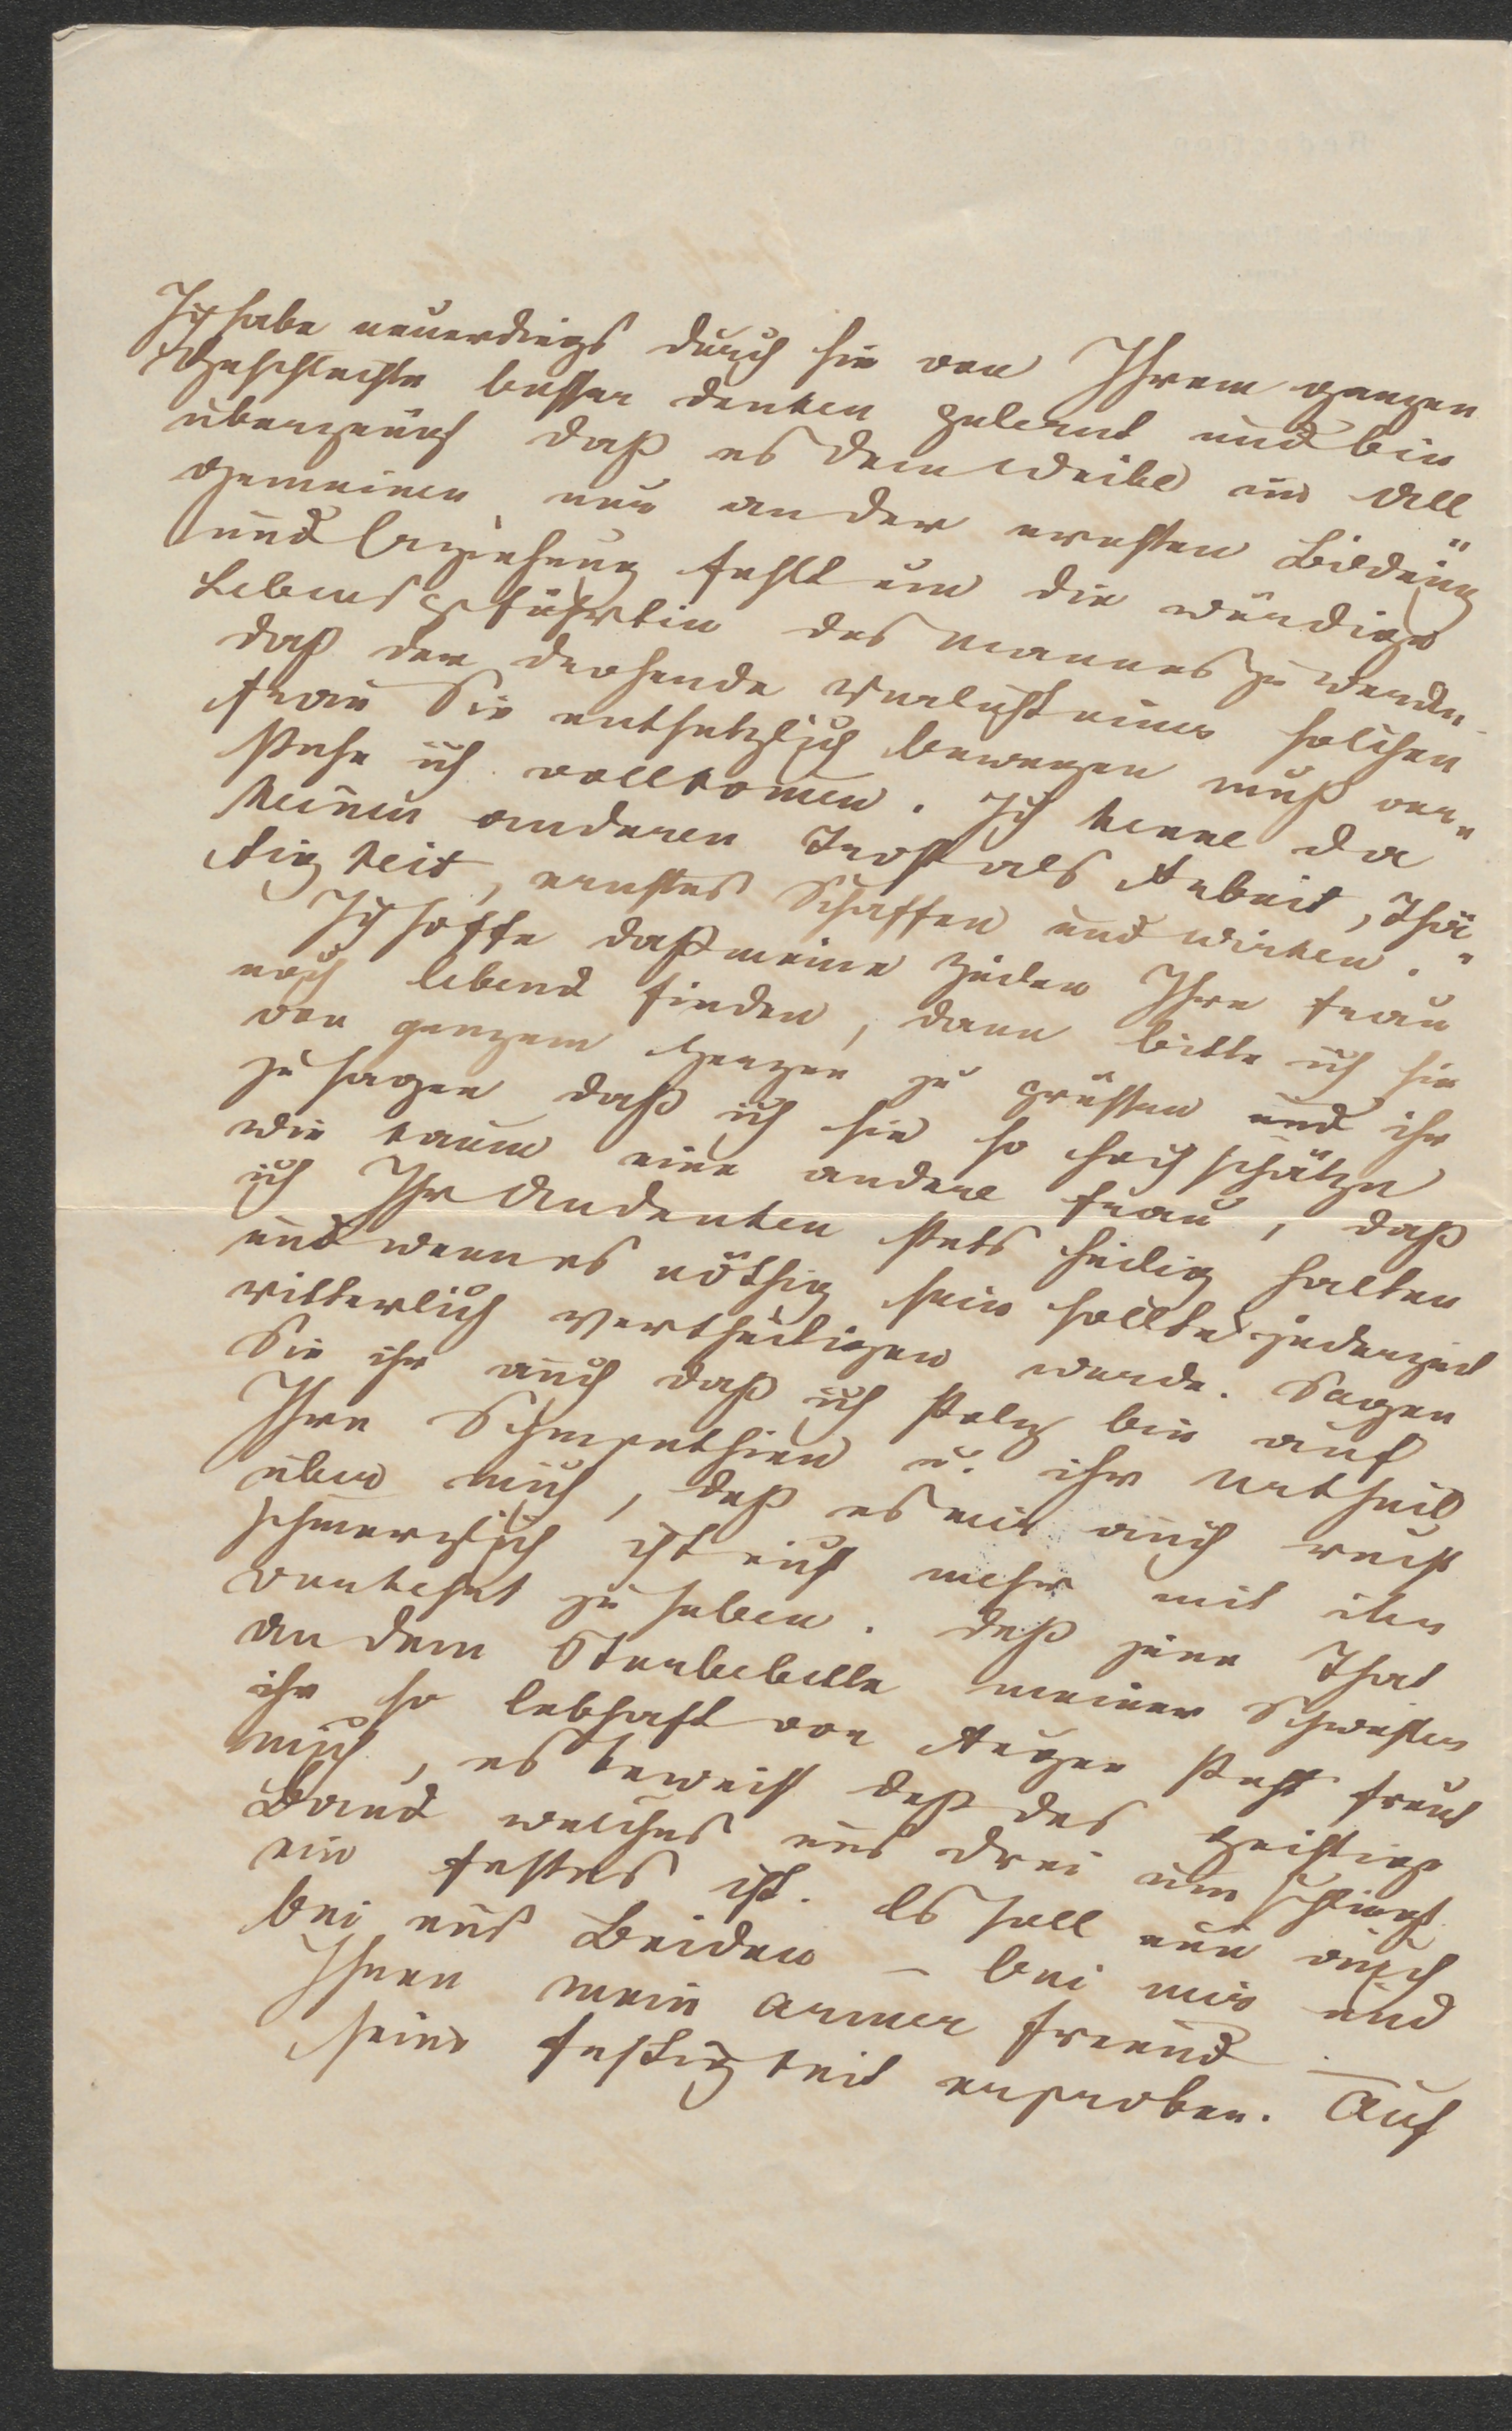 Ich habe neuerdings durch sie von Ihrem ganzen
Geschlechte besser denken gelernt und bin
überzeugt daß es dem Weibe im All
gemeinen nur an der ernsten Bildung
und Erziehung fehlt um die würdige
Lebensgefährtin des Mannes zu werden
daß der drohende Verlust einer solchen
Frau Sie entsetzlich bewegen muß ver„
stehe ich vollkomen. Ich kenne da
keinen anderen Trost als Arbeit, Thä„
tigkeit, ernstes Schaffen und Wirken.
Ich hoffe daß meine Zeilen Ihre Frau
noch lebend finden, dann bitte ich sie
von ganzem Herzen zu grüssen und ihr
zu sagen daß ich sie so hoch schätze
wie kaum eine andere Frau, daß
ich Ihr Andenken stets heilig halten
und wenn es nöthig sein sollte jederzeit
ritterlich vertheidigen werde. Sagen
Sie ihr auch daß ich stolz bin auf
Ihre Sympathien u. ihr Urtheil
über mich, daß es mir auch recht
schmerzlich ist nicht mehr mit ihr
verkehrt zu haben. Daß jene That
an dem Sterbebette meiner Schwester
ihr so lebhaft vor Augen steht freut
mich, es beweist daß das geistige
Band welches uns drei umschlingt
ein festes ist. Es soll nun auch
bei uns Beiden – bei mir und
Ihnen mein armer Freund –
seine Festigkeit erproben. Auf